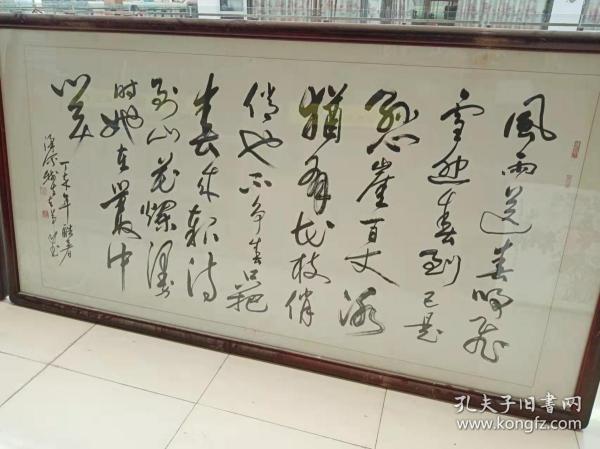 風雨送春归飛
雪迎春到已是
悬崖百丈冰
犹有花枝俏
俏也不争春只把
春来报待
到山花烂漫
时她在丛中
笑
孔夫子旧書网
www.kongfz.com